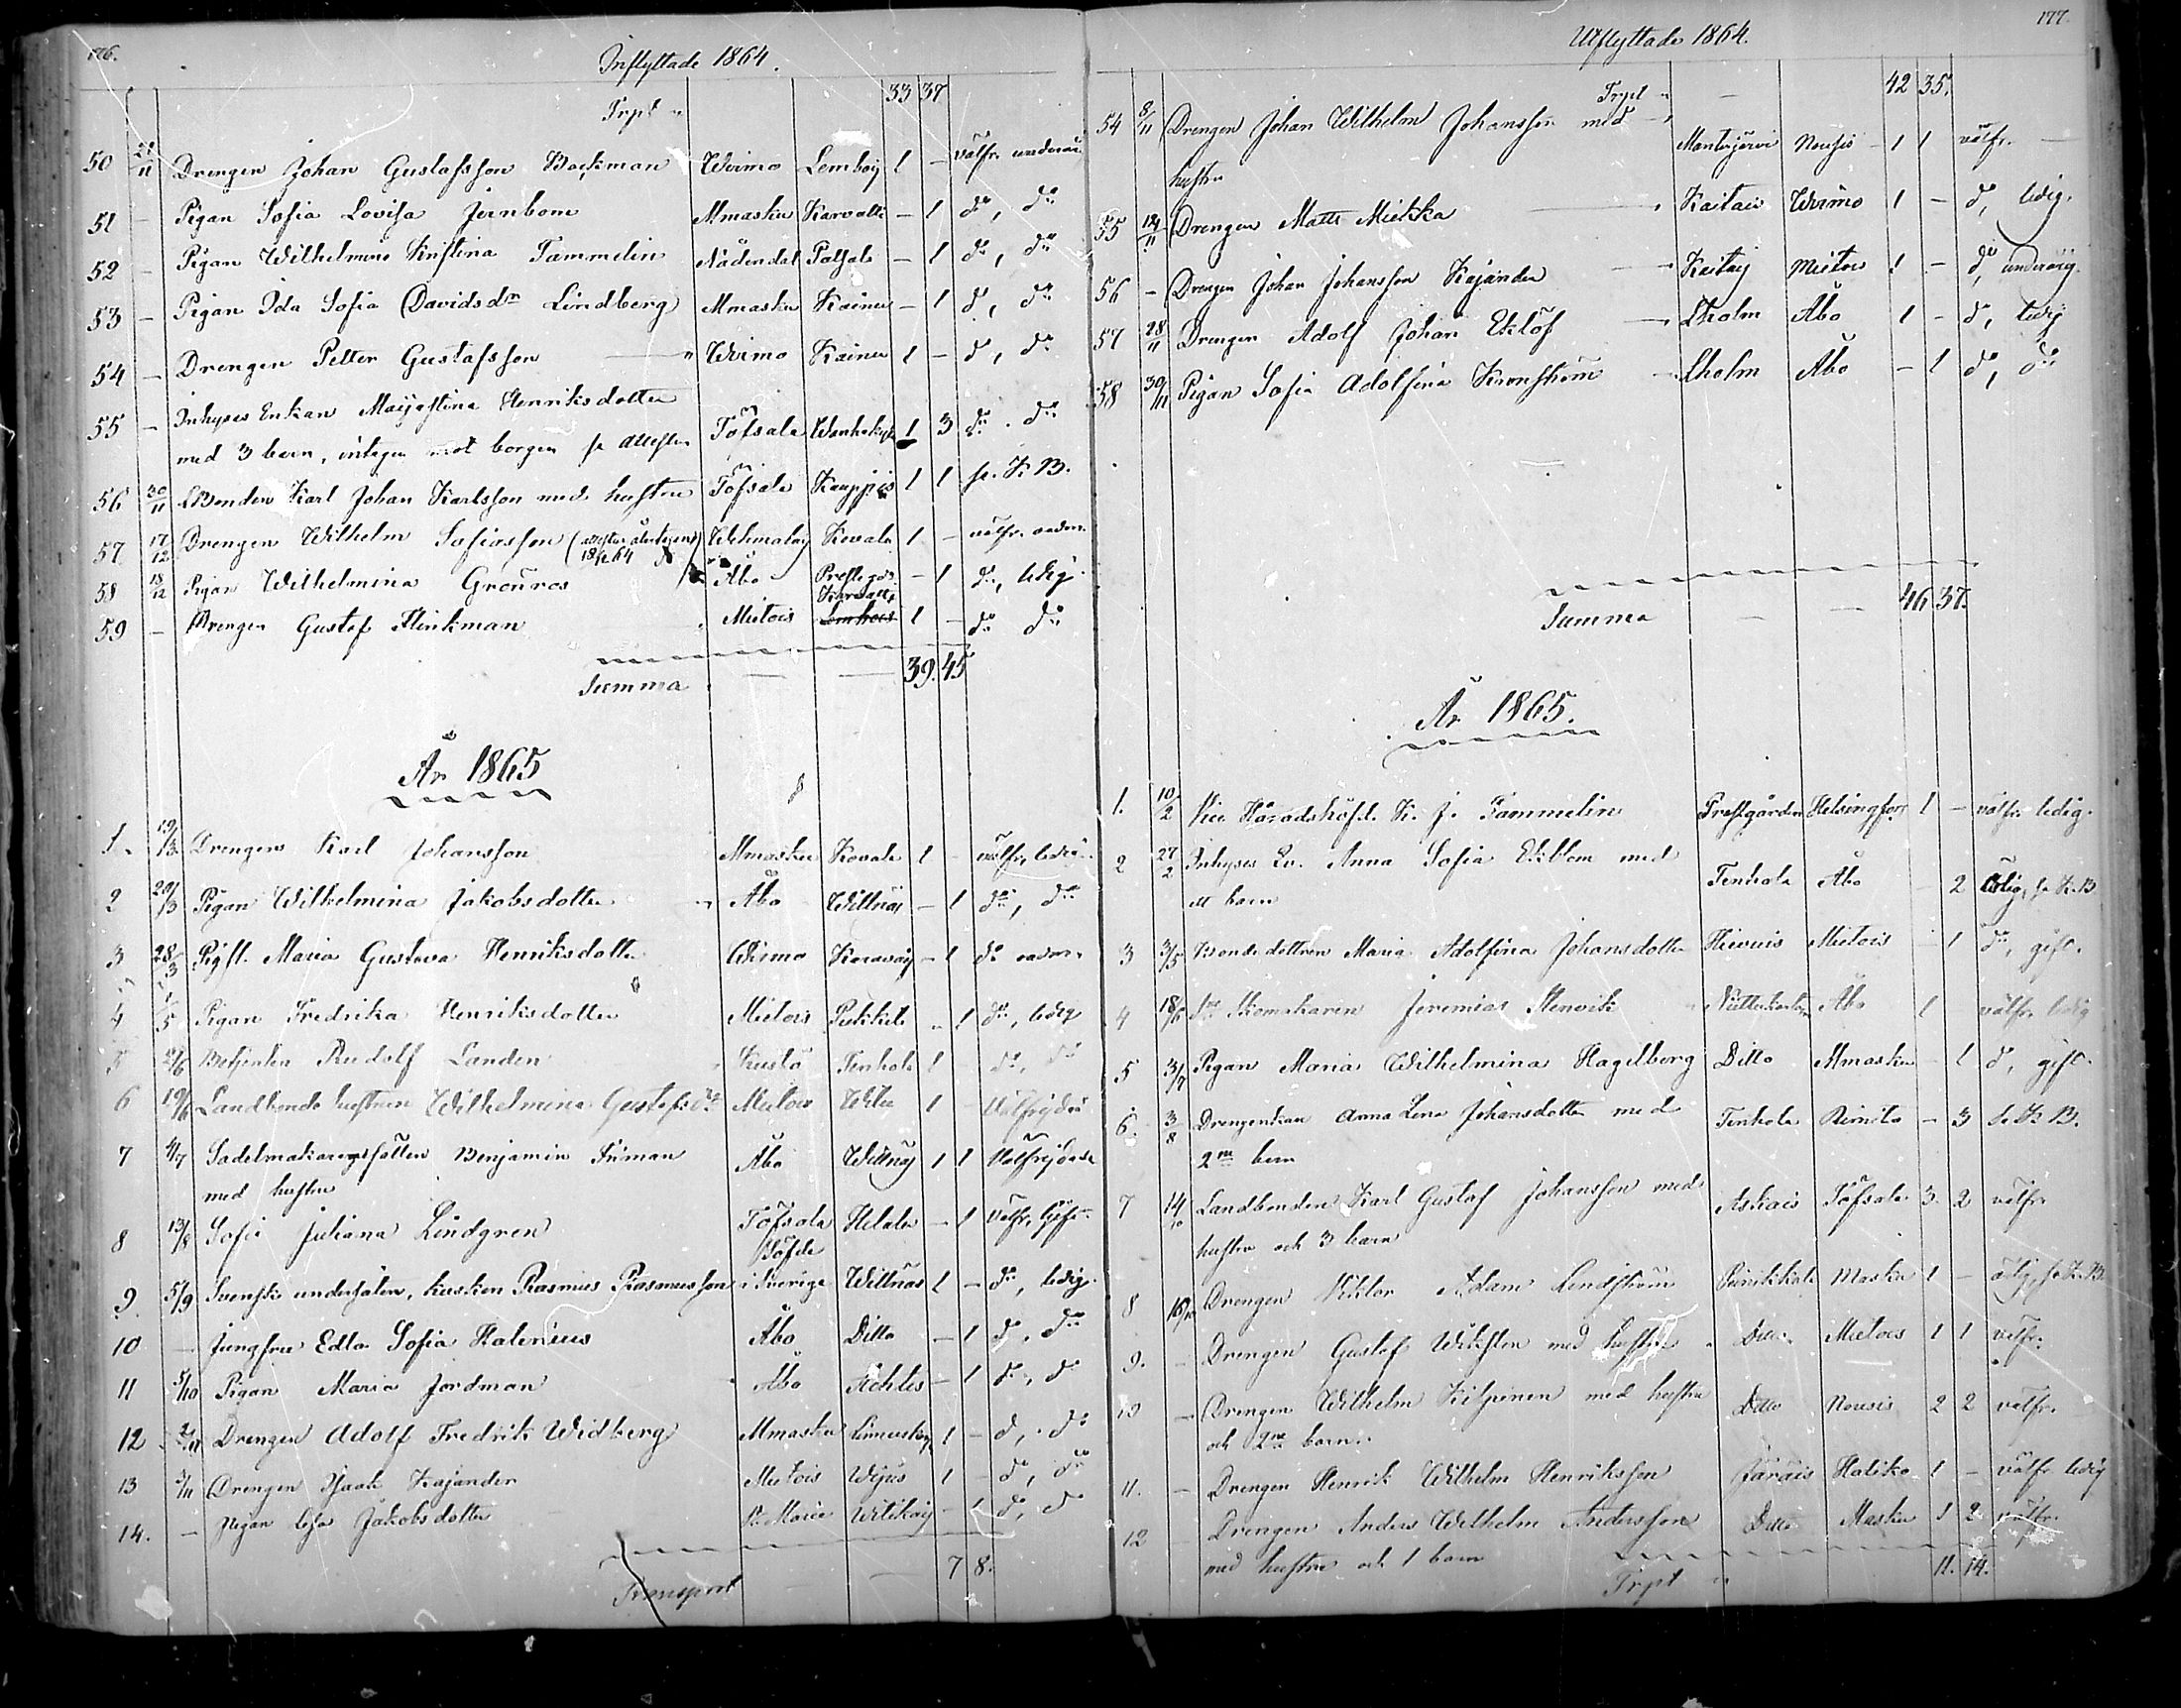 176.
Inflyttade 1864.
Trpt " 33 37
50 21/11 Drengen Johan Gustafsson Backman Wirmo Lemböij 1 – välfr. underår.
51 – Pigan Sofia Lovisa Jernbom Mmasku Karvatti – 1 do, do
52 – Pigan Wilhelmina Kristina Tammelin Nådendal – 1 do, do
53 – Pigan Ida Sofia Davidsdr Lindberg Mmasku Kainu – 1 do, do
54 – Drengen Petter Gustafsson " Wirmo Kainu 1 – do, do
55 – Inhyses Enkan Majastina Henriksdotter
med 3 barn, intagen mot borgen Töfsala 1 3 do. do
56 30/11 Bonden Karl Johan Karlsson med hustru Töfsala Kauppis 1 1 se. K. B.
57 17/12 Drengen Wilhelm Sofiasson ( Kovala 1 – välfr.
58 18/12 Pigan Wilhelmina Grönros Åbo Prestgår. – 1 do, ledig.
59 – Drengen Gustaf Flinkman Mietois Karvatti 1 – do do
Summa. — — 39. 45
År 1865
1. 19/3 Drengen Karl Johansson Mmasku Kovala 1 – välfr, ledig.
2 20/3 Pigan Wilhelmina Jakobsdotter " Åbo Willnäs – 1 do, do
3 28/3 Maria Gustava Henriksdotter Wirmo – 1 do
4 1/5 Pigan Fredrika Henriksdotter Mietois – 1 do, ledig
5 2/6 Betjenten Rudolf Landen Kustö Tenhola 1 do, do
6 19/6 Landbonde hustrun Wilhelmina Gustafsdr Mietois 1 – Välfrejdad
7 4/7 Sadelmakaregesällen Benjamin Åbo Willnäs 1 1 Välfrejdade
med hustru
8 13/8 Sofia Juliana Lindgren Töfsala – 1 Välfr. Gift
9. 5/9 Svenske undersåten, kusken Rasmus Rasmusson i Sverige Willnäs 1 – do, ledig.
10 – Jungfru Edla Sofia Halenius Åbo Ditto – 1 do, do
11 5/10 Pigan Maria Jordman Åbo Achtis – 1 do, do
12 2/11 Drengen Adolf Fredrik Widberg Mmasku 1 – do, do
13 3/11 Drengen Isaak Kajander Mietois 1 – do, do
14. – Pigan Lisa Jakobsdotter St Marie – 1 do, do
Transport — — 7 8.
177.
Utflyttade 1864.
Trpt " — 42 35.
54 8/11 Drengen Johan Wilhelm Johansson med
hustru Mantsjärvi Nousis – 1 1 välfr. –
55 12/11 Drengen Matts Miekka Kaitais Wirmo 1 – do, ledig.
56 – Drengen Johan Johansson Kajander Kaitaij Mietois 1 – do, underårig.
57 28/11 Drengen Adolf Johan Eklöf Lholm Åbo 1 – do, ledig
58 30/11 Pigan Sofia Adolfina Kronström Lholm Åbo – 1 do, do
Summa — — 46 37.
År 1865.
1. 10/2 Vice Häradshöfd. K. J. Tammelin Prestgården Helsingfors 1 – välfr. ledig.
2 27/2 Inhyses Anna Sofia Ekblom med
ett barn Tenhola Åbo 2 K. B
3 3/5 Bonde dottren Maria Adolfina Johansdotter Hiwuis Mietois 1 do, gift.
4 18/6 Skomakaren Jeremias Stenvik Åbo 1 välfr. ledig
5 3/7 Pigan Maria Wilhelmina Hagelberg Ditto Mmasku – 1 do, gift.
6. 3/8 Drengenkan Anna Lena Johansdotter med
2ne barn Tenhola Rimito – 3 K. B.
7 14/10 Landbonden Karl Gustaf Johansson med
hustru och 3 barn Askais Töfsala 3. 2 välfr.
8 16/10 Drengen Viktor Adam Lindström Masku 1 – K. B.
9. – Drengen Gustaf Wiksten med hustru " Ditto Mietois 1 1 välfr.
10 – Drengen Wilhelm Kilpinen med hustru
och 2ne barn. Ditto Nousis 2 2 välfr.
11. – Drengen Henrik Wilhelm Henriksson Järäis Haliko 1 – välfr ledig
12 Drengen Anders Wilhelm Andersson Ditto Masku 1 2 välfr.
med hustru och 1 barn
Trpt " 11. 14.